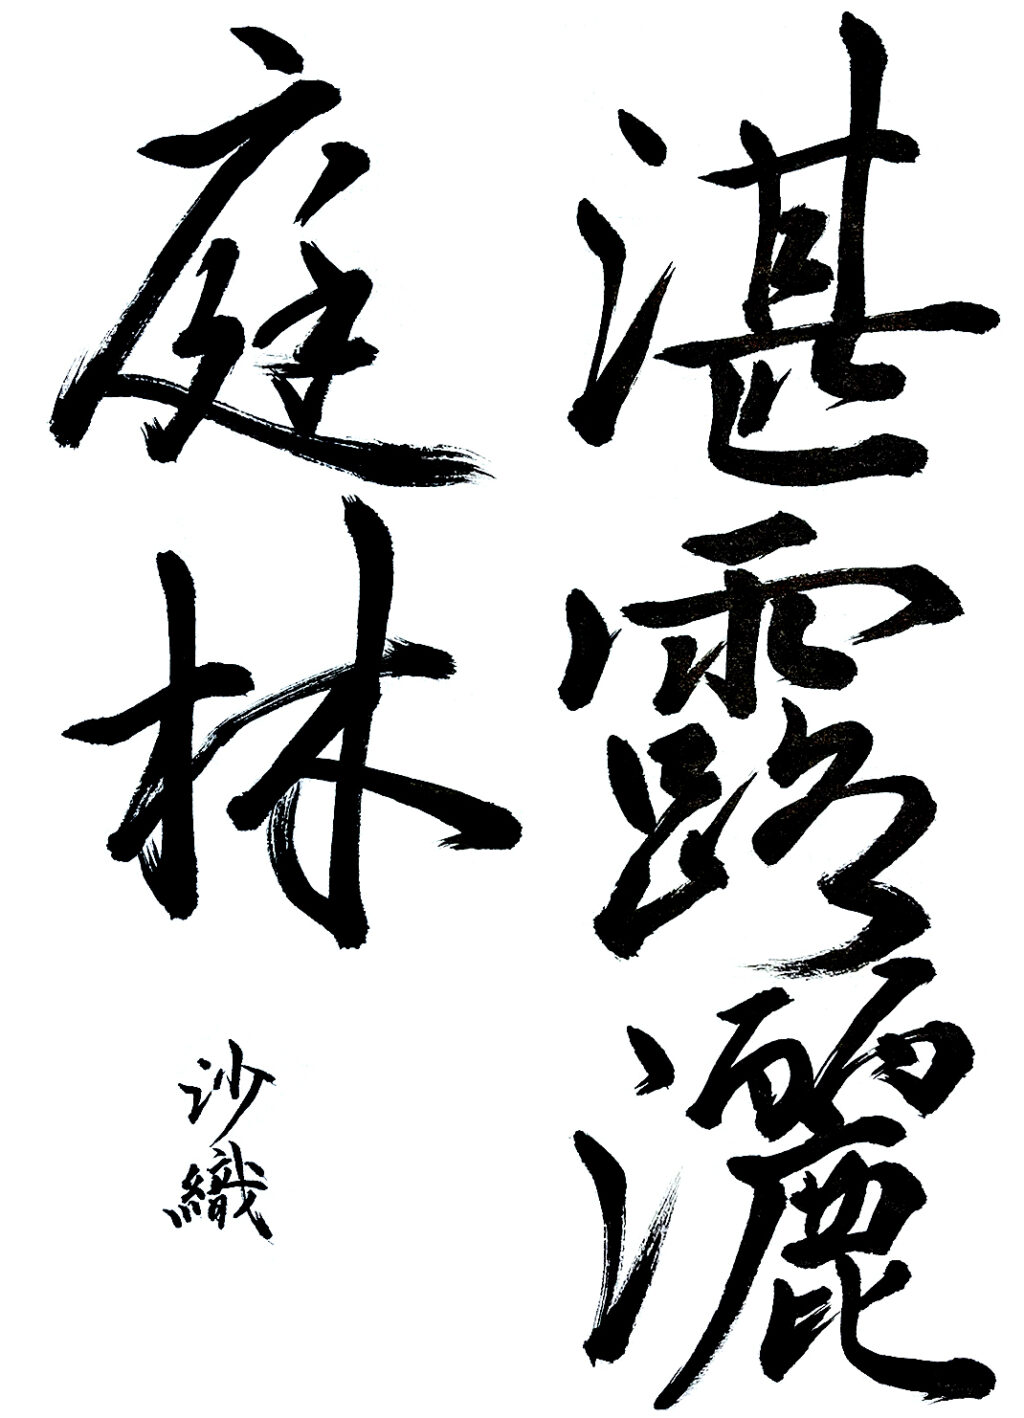 湛露灑
庭林
沙織